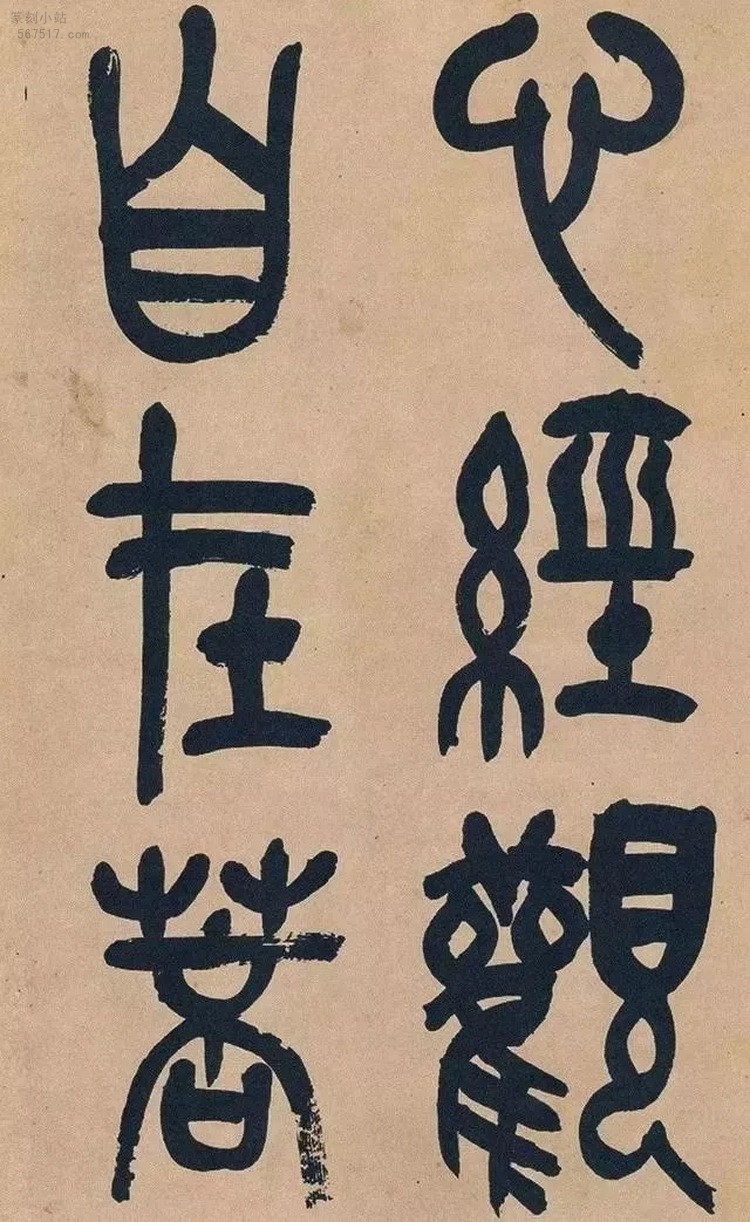 篆刻小站
567517.com
心經觀
自在菩